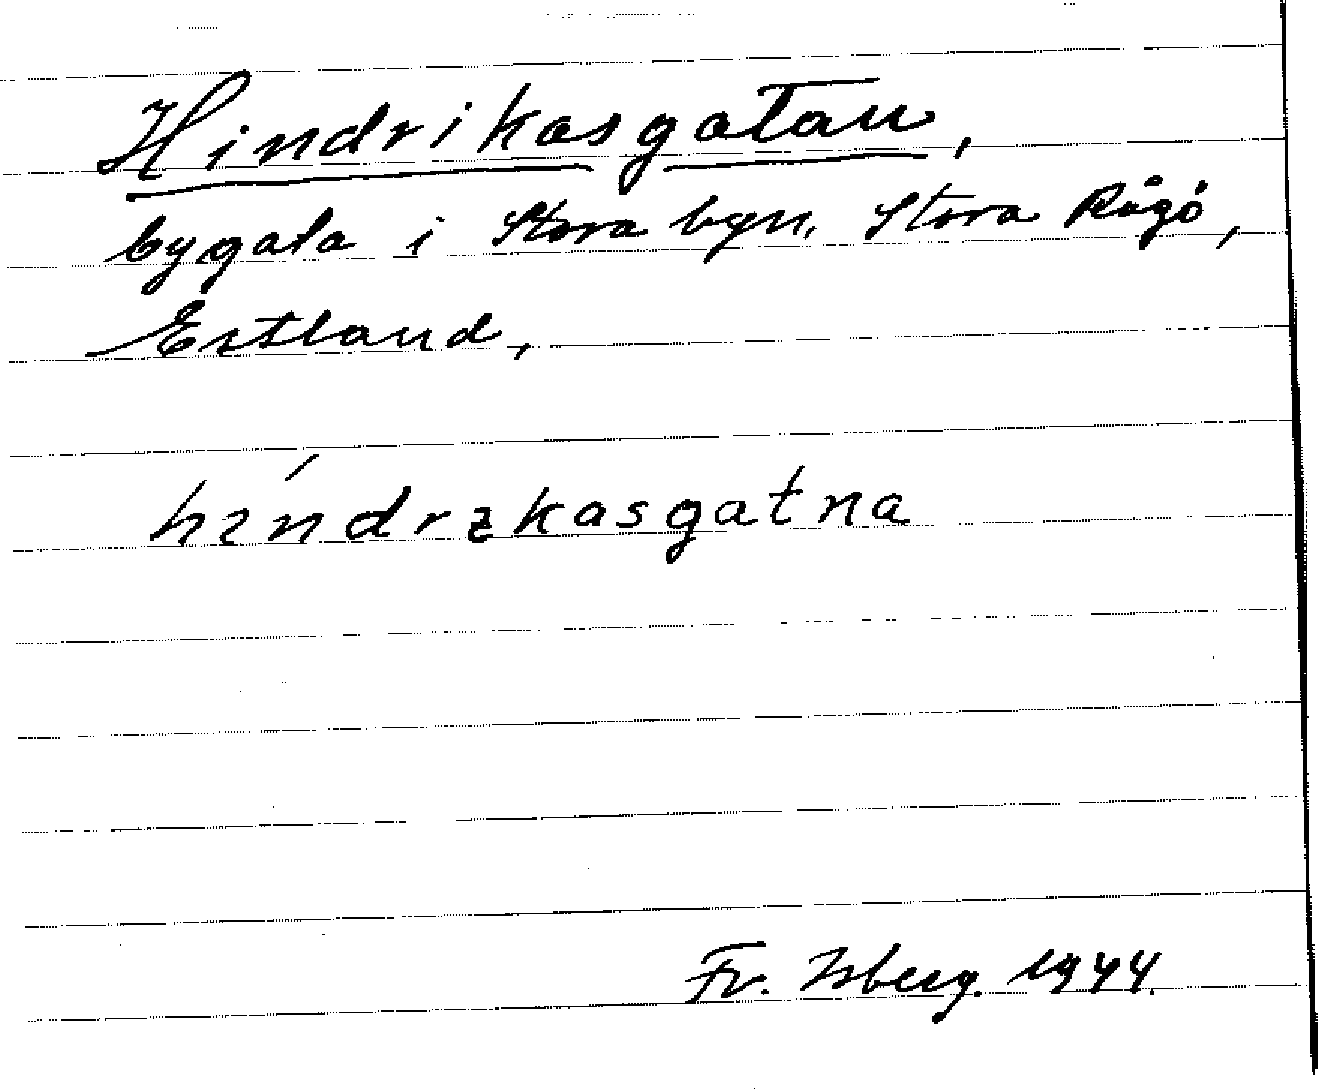 Hindrikasgatan,
bygata i Stora byn, Stora Rågö,
Estland,
hɩ́ndrɩkasgatna
Fr. Isberg. 1944.